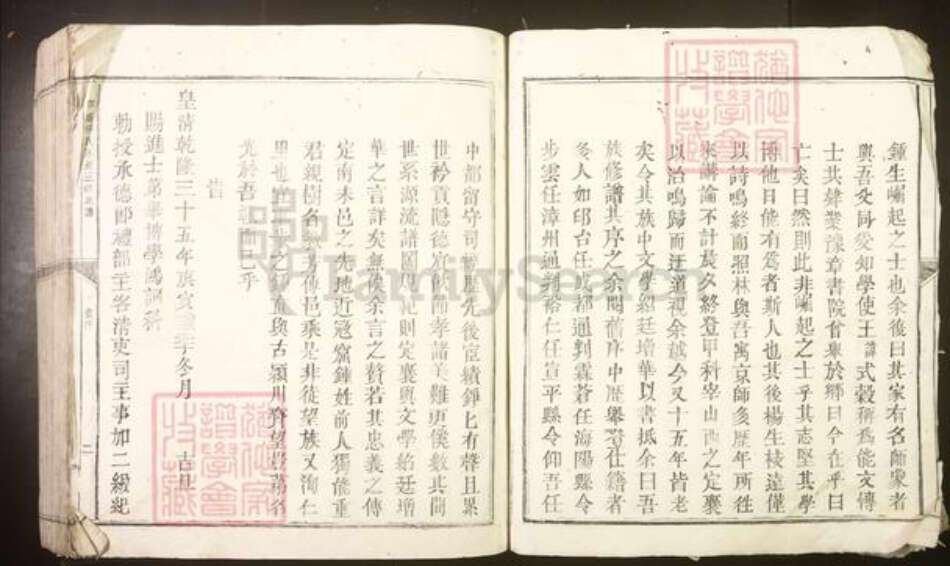 鍾生崛起之士也余後曰其家有名師衆者
與吾交同愛知學使王 式穀稱為能文傳
士共肄業豫章書院嘗舉於鄉曰今在乎曰
亡矣曰然則此非崛起之士乎其志堅其學
博他日能有為者斯人也其後楊生棱遠僅
以詩鳴終南照林與吾寓京師多歷年所往
來辯論不計晨夕終登甲科宰山西之定襄
以治鳴歸而迂道視余越今又十五年皆老
矣今其族中文學紹廷增華以書抵余曰吾
族修譜其序之余閱舊序中歷舉登仕籍者
冬人如印台任成都通判霖蒼任海陽縣令
步雲任漳州通判裕仁任宣平縣令仰吾任
中都留守司 歷先後宦績錚七有聲且累
世矜貢隱德 候節孝諸美難更僕數其間
世系源流譜圖 則定襄與文學紹廷增
華之言詳矣無候余言之贅若其忠義之傳
定南未邑之先地近寇窟鍾姓前人獨能重
君親樹名 傳邑乘是非徒望族又洵仁
里也 之 直與古潁川齊望 萬
光於吾 乎
皆
皇清乾隆三十五年庚寅 冬月 吉旦
賜進士第舉博學鴻詞科
勅授承德郎禮部主客清吏司主事加二級紀
FamilySearch
譜學會
收藏